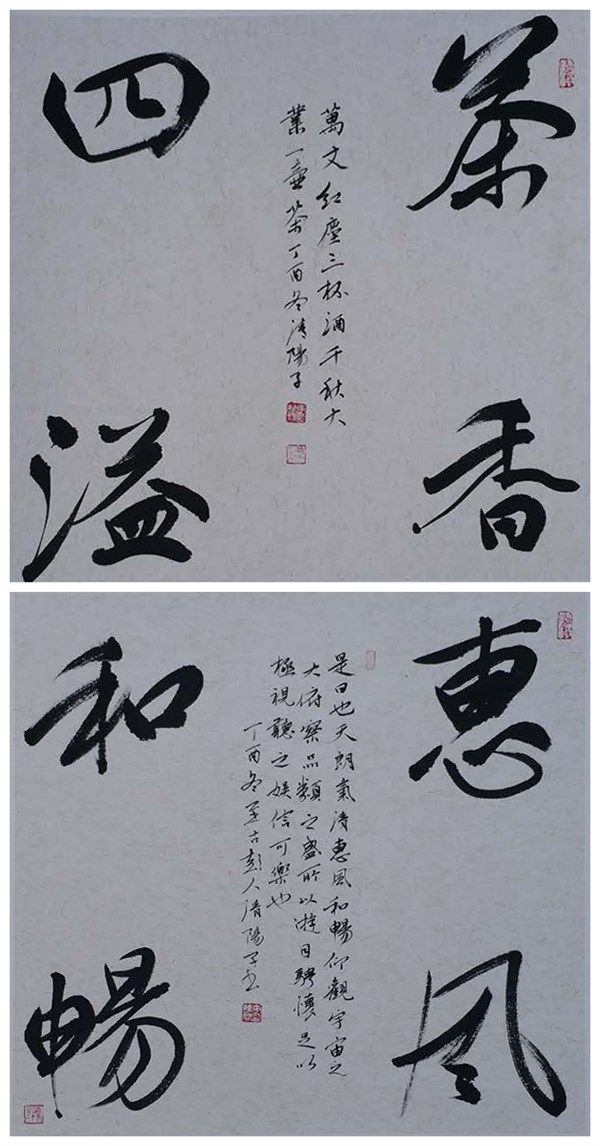 茶香
四溢
萬丈红塵三杯酒千秋大
業一壺茶丁酉冬清陽子
惠风
和暢
是日也天朗氣清惠風和暢仰觀宇宙之
大俯察品類之盛所以遊目騁懷足以
極視聽之娱信可樂也
丁酉冬至古彭人清陽子书